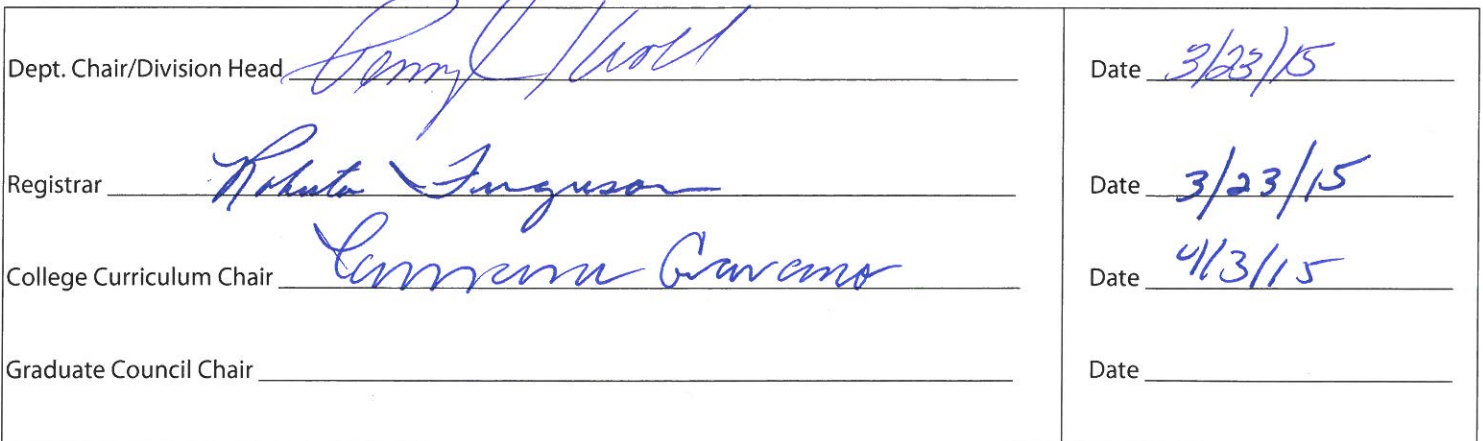 Dept. Chair/Division Head Penny Kroll Date 3/23/15
Registrar Roberta Ferguson Date 3/23/15
College Curriculum Chair Date 4/3/15
Graduate Council Chair Date